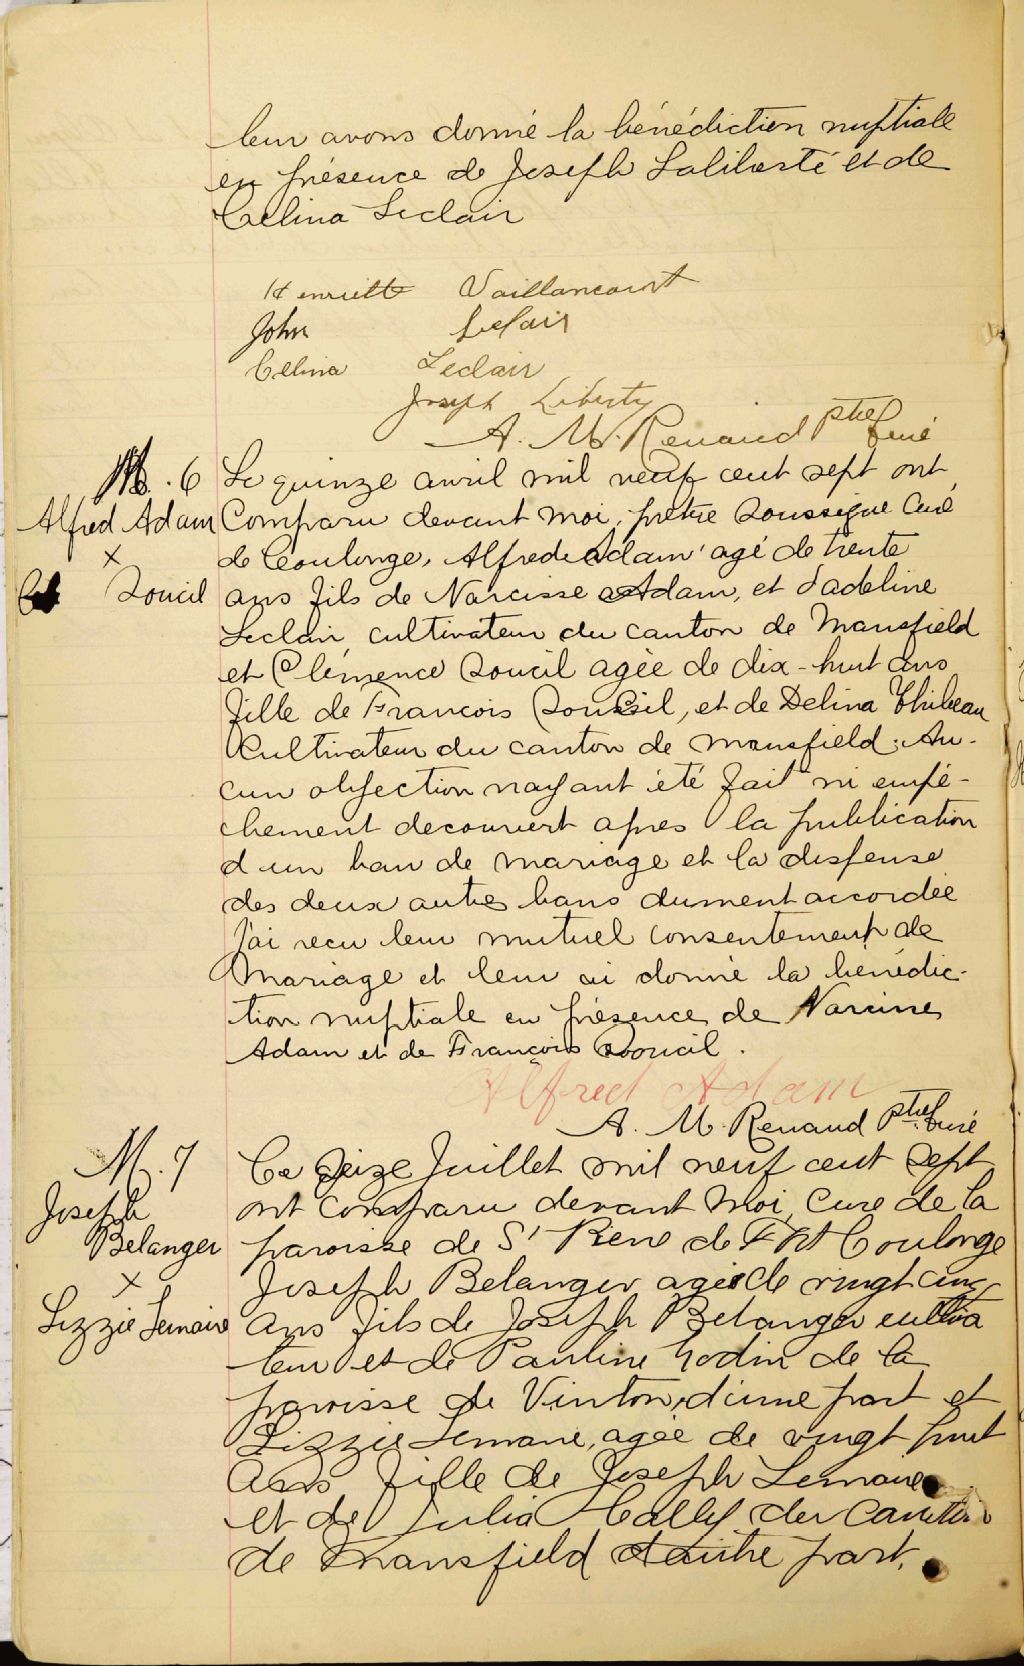 leur avons donné la bénédiction nuptiale
en présence de Joseph Laliberté et de
Celina Leclair
Henriette Vaillancourt
John Leclair
Celina Leclair
Joseph Liberty
A. M. Renaud Ptre Curé
M. 6
Alfred Adam
x
Soucil
Le quinze avril mil neuf cent sept ont
Comparu devant moi, prêtre soussigné Curé
de Coulonge, Alfred Adam agé de trente
ans fils de Narcisse Adam, et d'adeline
Leclair, cultivateur du canton de Mansfield
et Clémence Soucil agée de dix-huit ans
fille de François Soucil, et de Delina Thibeau
Cultivateur du canton de Mansfield. Au-
cun objection nayant été fait ni empê-
chement decouvert apres la publication
d un ban de mariage et la dispense
des deux autres bans dument accordée
J'ai recu leur mutuel consentement de
Mariage et leur ai donné la bénédic-
tion nuptiale en présence de Narcisse
Adam et de François Soucil.
Alfred Adam
A. M. Renaud Ptre Curé
M. 7
Joseph
Belanger
x
Lizzie Lemaire
Ce Seize Juillet mil neuf cent Sept
ont comparu devant moi, Curé de la
paroisse de St Pierre de Fort Coulonge
Joseph Belanger agé de vingt cinq
ans fils de Joseph Belanger cultiva
teur et de Pauline Godin de la
paroisse de Vinton, d'une part et
Lizzie Lemaire, agée de vingt huit
ans fille de Joseph Lemaire
et de Julia Cally du Canton
de Mansfield d'autre part.